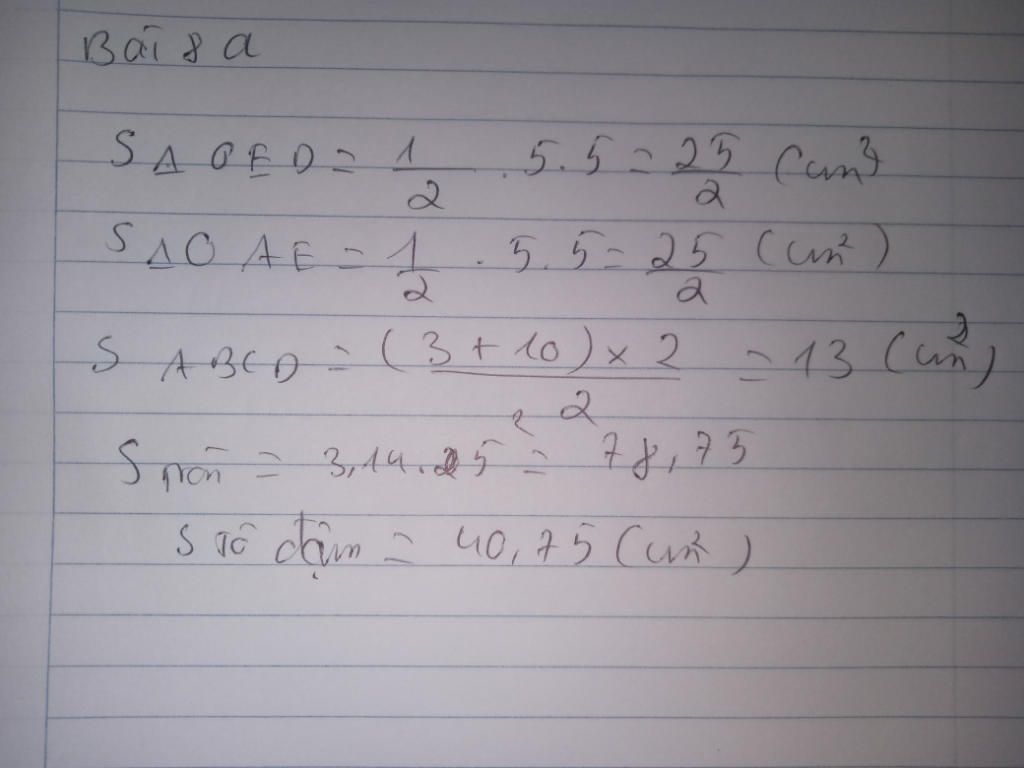 Bài 8 a
S Δ OED = 1/2 . 5.5 = 25/2 (cm²)
S Δ OAE = 1/2 . 5.5 = 25/2 (cm²)
S ABCD = (3 + 10) × 2 / 2 = 13 (cm²)
S tròn = 3,14.5² = 78,75
S tô đậm = 40,75 (cm²)